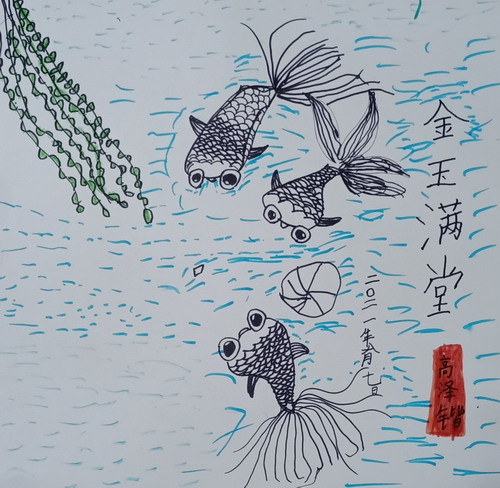 金玉满堂
二〇二一年六月七日
高泽锴